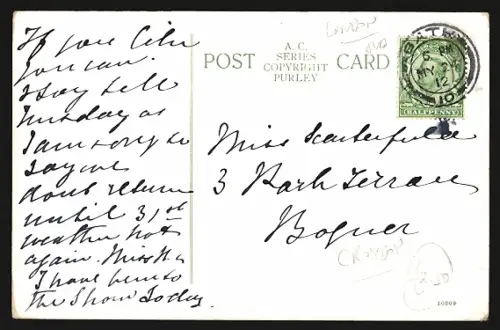 If you like
you can
stay till
Tuesday as
I am sorry to
say we
dont return
until 31st
weather not
again. Miss H &
I have been to
the Show Today
POST CARD
A.C.
SERIES
COPYRIGHT
PURLEY
London
MY
12
10
HALFPENNY
Miss Scarterfield
3 Park Terrace
Bognor
CROYDON
10869